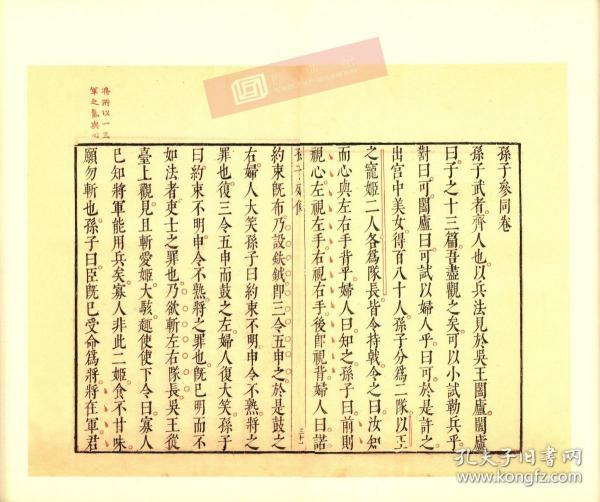 孫子參同卷
孫子武者齊人也以兵法見於吳王闔廬闔廬
曰子之十三篇吾盡觀之矣可以小試勒兵乎
對曰可闔廬曰可試以婦人乎曰可於是許之
出宮中美女得百八十人孫子分為二隊以王
之寵姬二人各為隊長皆令持戟令之曰汝知
而心與左右手背乎婦人曰知之孫子曰前則
視心左視左手右視右手後即視背婦人曰諾
約束旣布乃設鈇鉞即三令五申之於是鼓之
右婦人大笑孫子曰約束不明申令不熟將之
罪也復三令五申而鼓之左婦人復大笑孫子
曰約束不明申令不熟將之罪也旣已明而不
如法者吏士之罪也乃欲斬左右隊長吳王從
臺上觀見且斬愛姬大駭趣使使下令曰寡人
已知將軍能用兵矣寡人非此二姬食不甘味
願勿斬也孫子曰臣旣已受命為將將在軍君
孔夫子旧书网
www.kongfz.com